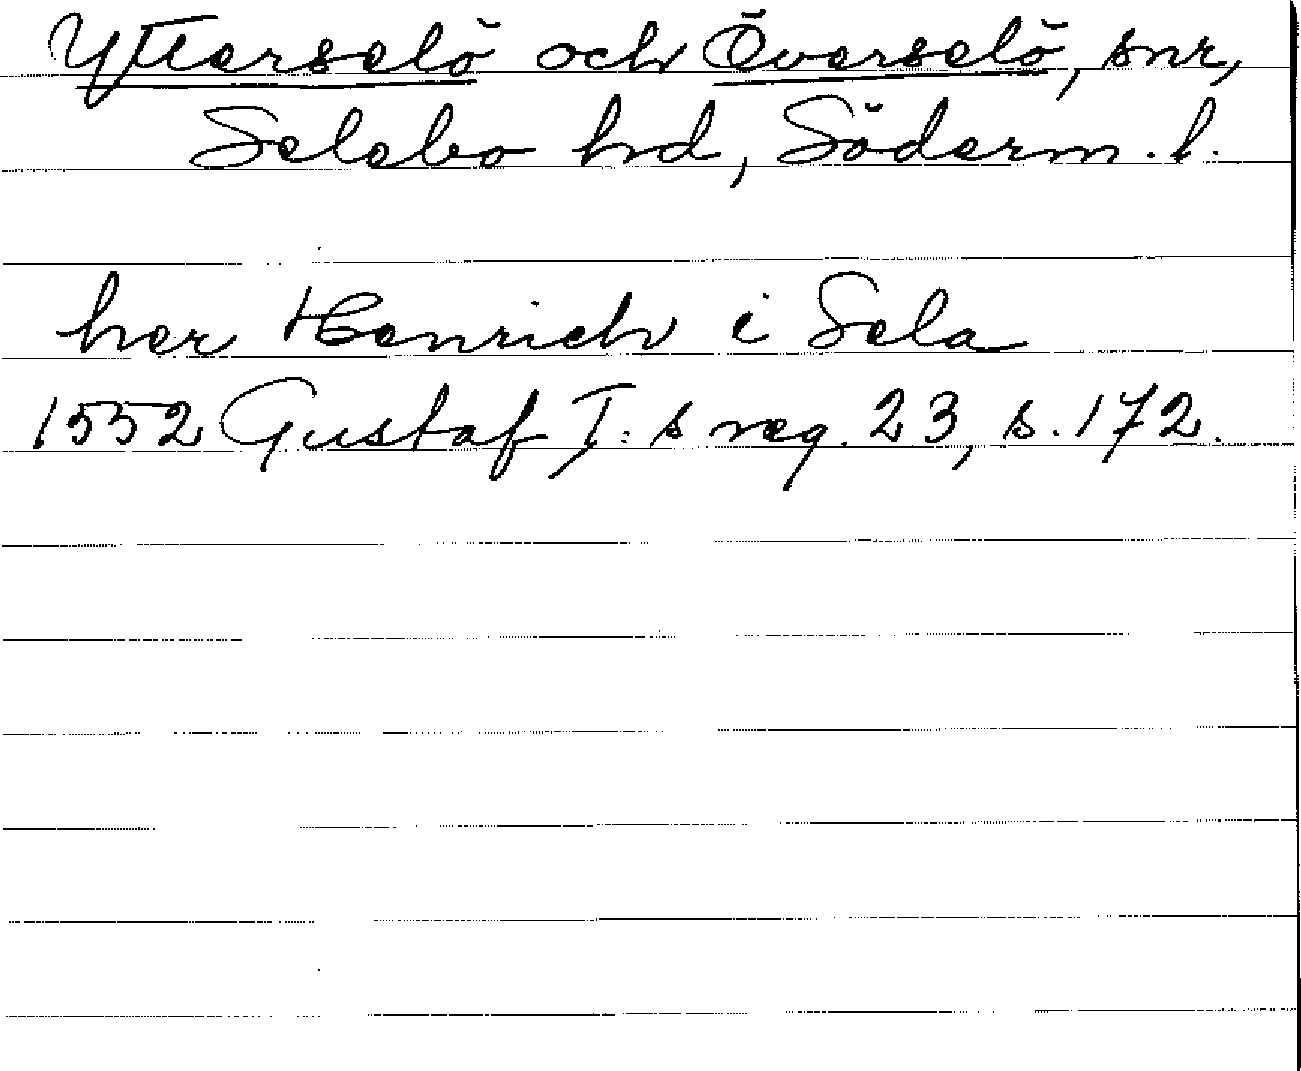 Ytterselö och Överselö, snr,
Selebo hd, Söderm. l.
her Henrich i Sela
1552 Gustaf I:s reg. 23, s. 172.